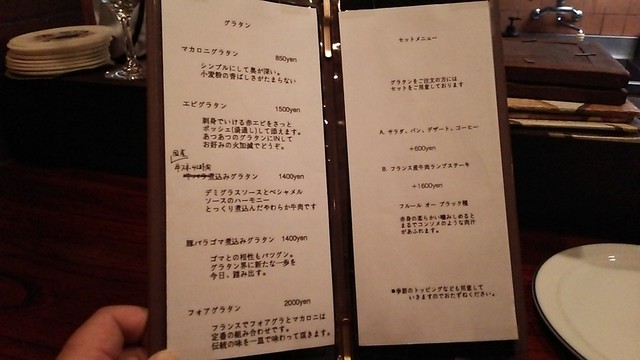 グラタン
マカロニグラタン 850yen
シンプルにして奥が深い。
小麦粉の香ばしさがたまらない
エビグラタン 1500yen
刺身でいける赤エビをさっと
ポッシェ(湯通し)して添えます。
あつあつのグラタンにINして
お好みの火加減でどうぞ。
国産
煮込みグラタン 1400yen
デミグラスソースとベシャメル
ソースのハーモニー
とっくり煮込んだやわらか牛肉です
豚バラゴマ煮込みグラタン 1400yen
ゴマとの相性もバツグン。
グラタン界に新たな一歩を
今日、踏み出す。
フォアグラタン 2000yen
フランスでフォアグラとマカロニは
定番の組み合わせです。
伝統の味を一皿で味わって頂きます。
セットメニュー
グラタンをご注文の方には
セットをご用意しております
A. サラダ、パン、デザート、コーヒー
+600yen
B. フランス産牛肉ランプステーキ
+1600yen
フルール オー ブラック種
赤身の柔らかい噛みしめると
まるでコンソメのような肉汁
があふれます。
※季節のトッピングなども用意して
いきますのでおたずねください。